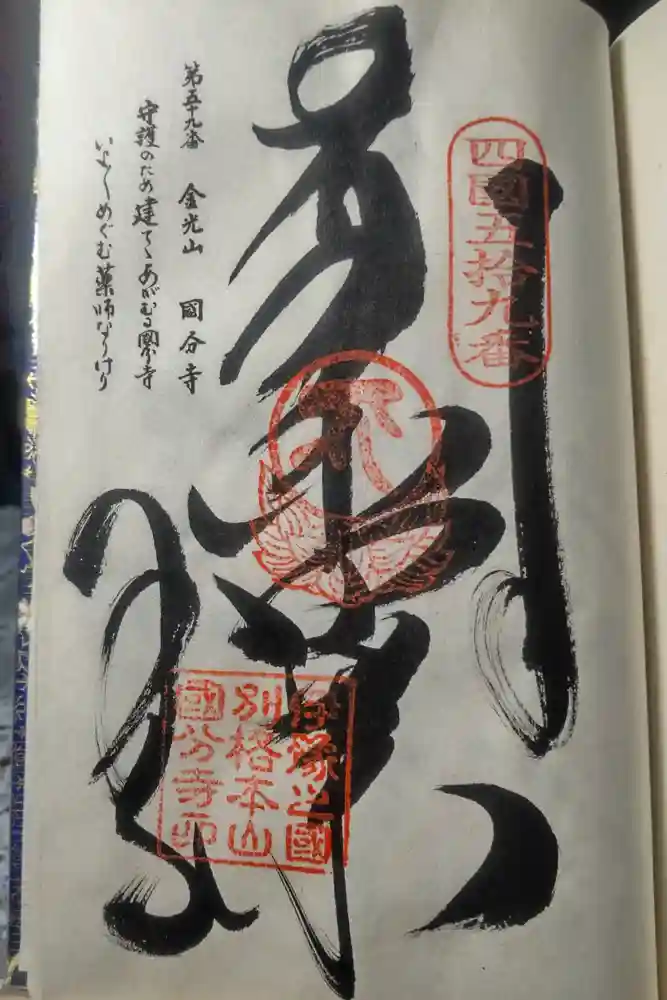 四國五拾九番
伊豫之國
別格本山
國分寺印
第五十九番 金光山 國分寺
守護のため建てゝあがむる國分寺
いよ〳〵めぐむ薬師なりけり